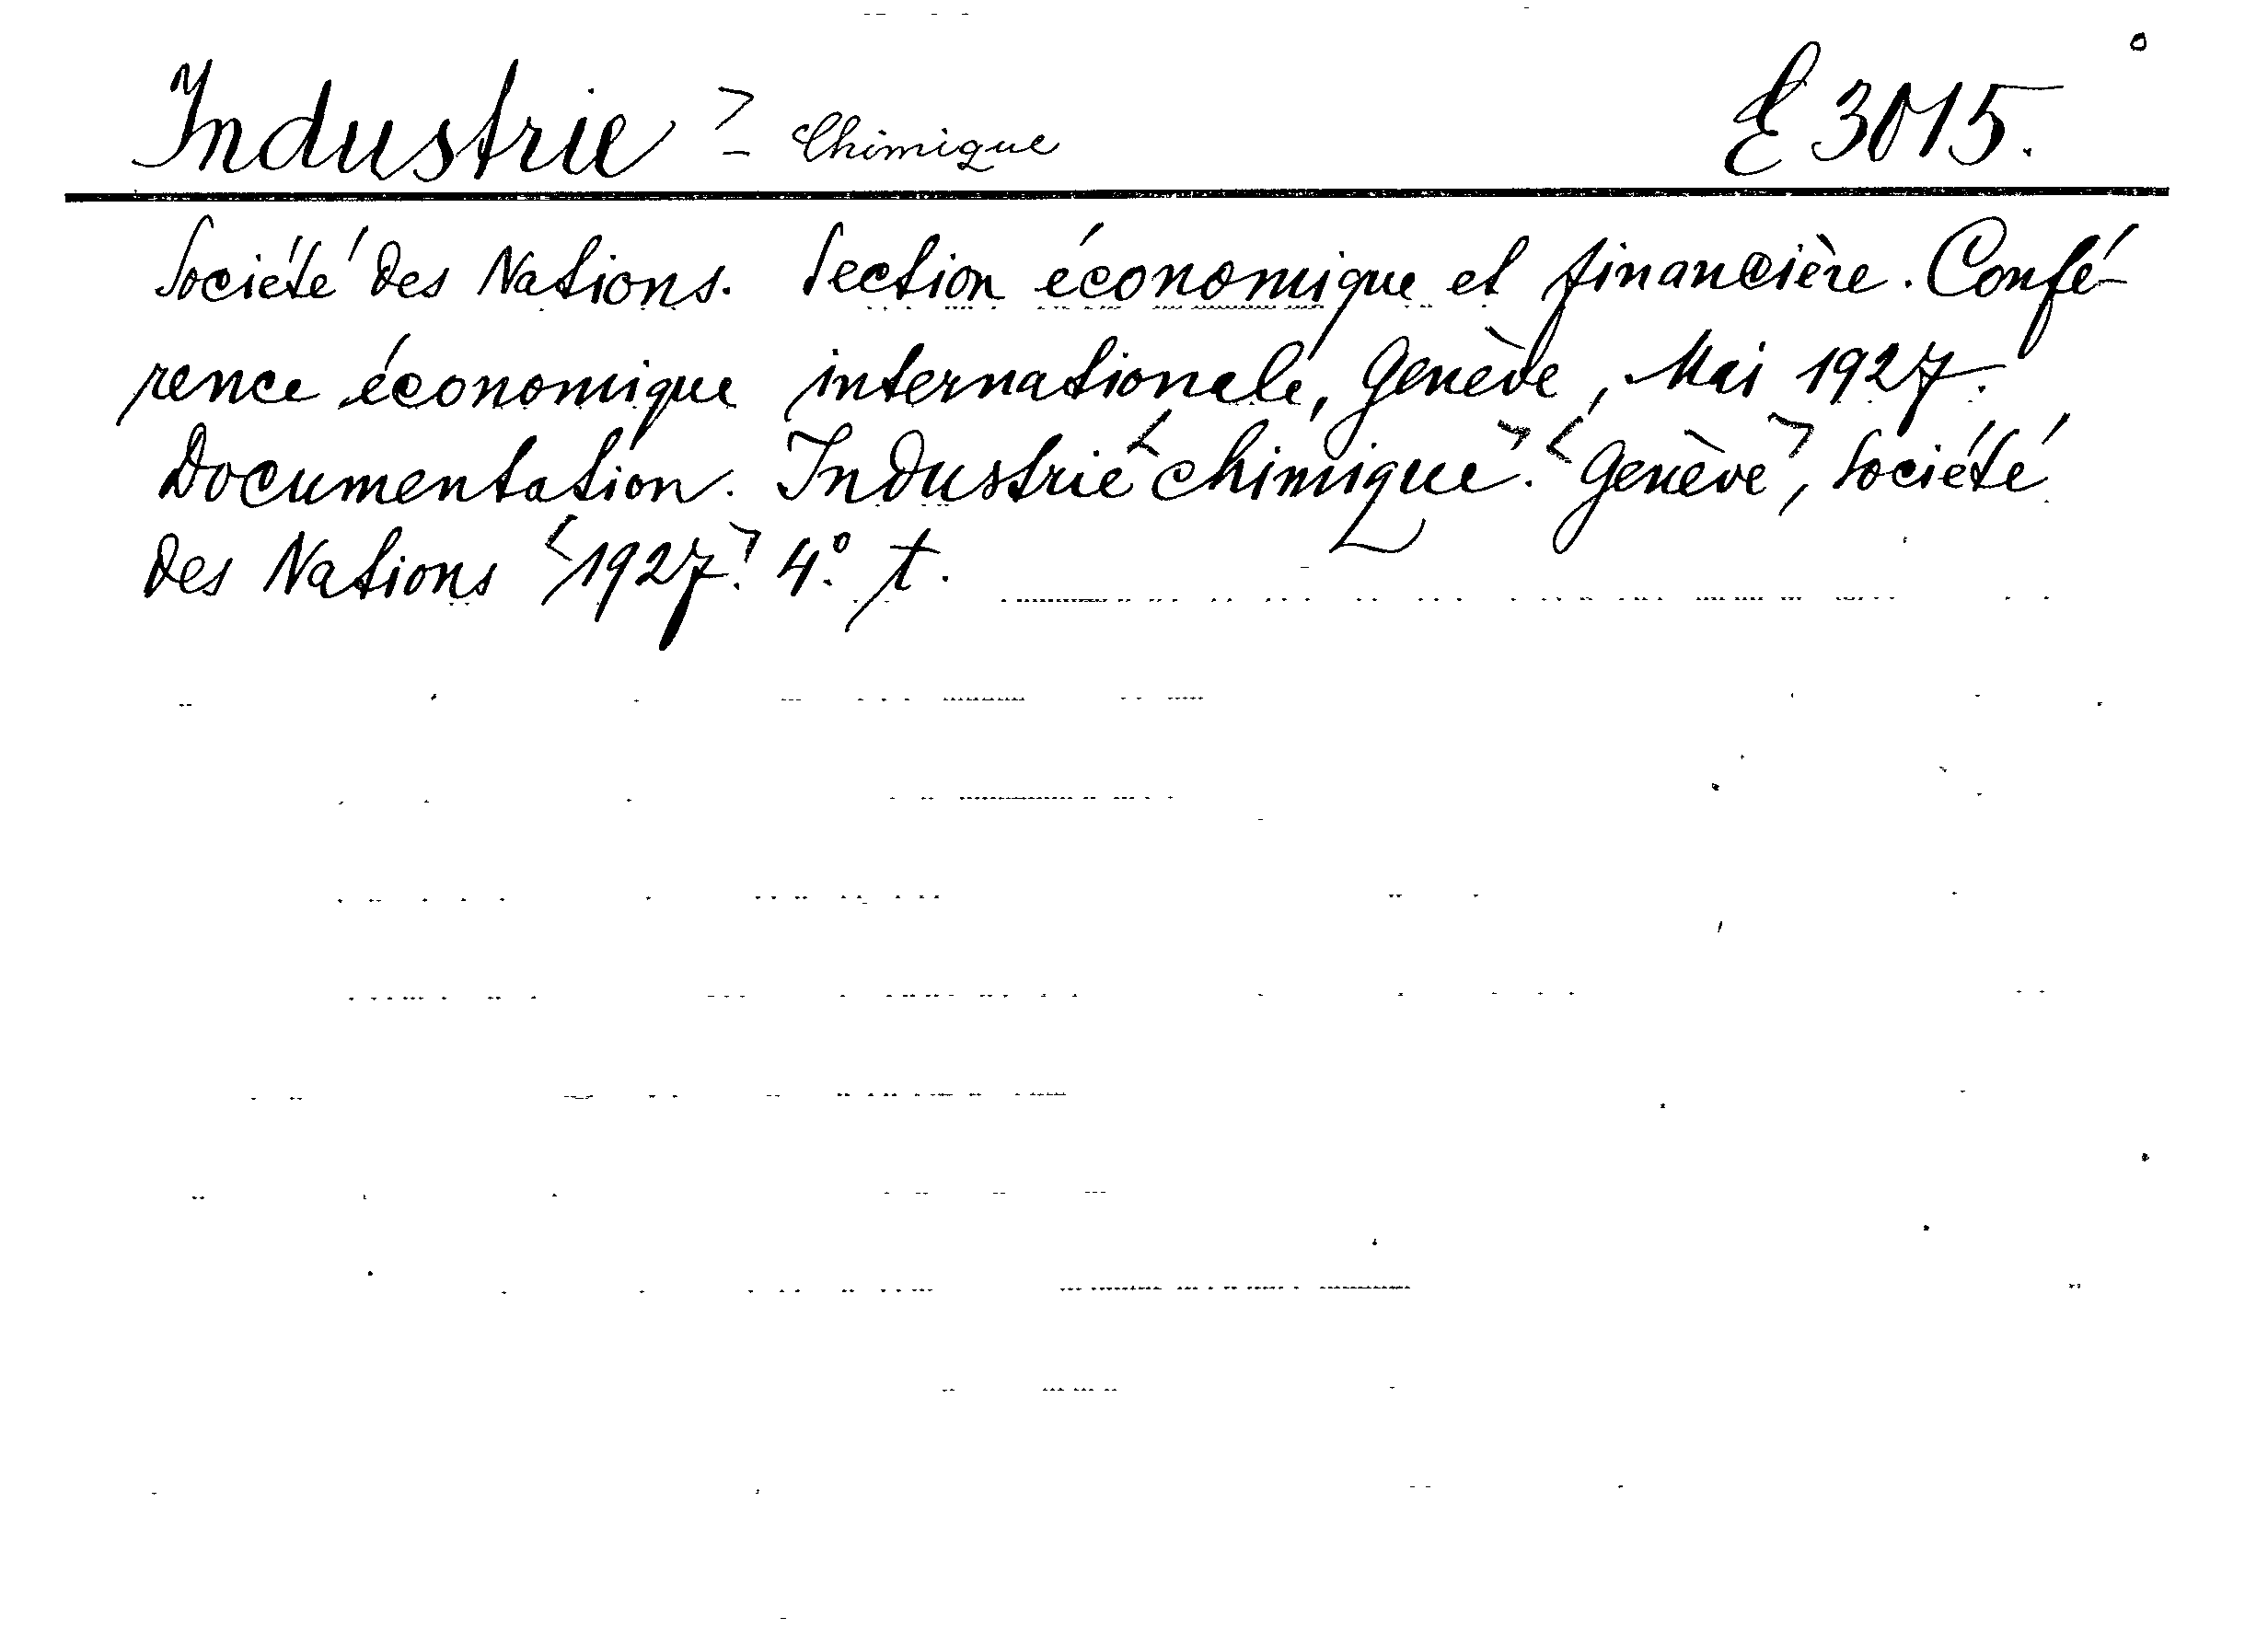 Industrie > - Chimique E 3015.
Société des Nations. Section économique et financière. Confé-
rence économique internationale, Genève, Mai 1927.
Documentation. Industrie <chimique>. <Genève>, Société
des Nations <1927>. 4° t.